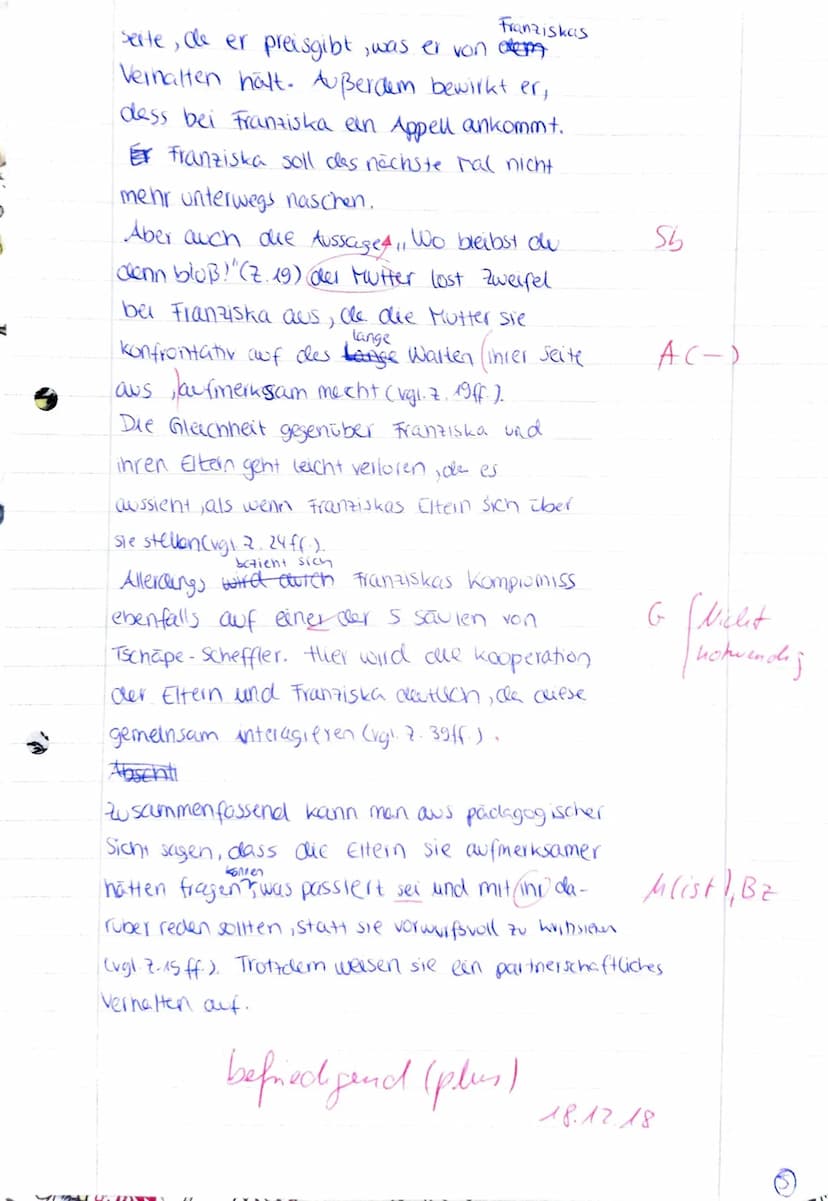 seite, da er preisgibt, was er von dem Franziskas
Verhalten hält. Außerdem bewirkt er,
dass bei Franziska ein Appell ankommt.
Er Franziska soll das nächste Mal nicht
mehr unterwegs naschen.
Aber auch die Aussage, „Wo bleibst du Sb
denn bloß!" (Z. 19) der Mutter löst Zweifel
bei Franziska aus, da die Mutter sie
konfrontativ auf das Lange lange Warten (ihrer Seite A (-)
aus, aufmerksam macht (vgl. Z. 19ff.).
Die Gleichheit gegenüber Franziska und
ihren Eltern geht leicht verloren, da es
aussieht, als wenn Franziskas Eltern sich über
sie stellen (vgl. Z. 24ff.).
Allerdings wird durch bezieht sich Franziskas Kompromiss
ebenfalls auf einer der 5 Säulen von G Nicht
Tschöpe-Scheffler. Hier wird die Kooperation notwendig
der Eltern und Franziska deutlich, da diese
gemeinsam interagieren (vgl. Z. 39ff.).
Abschli
Zusammenfassend kann man aus pädagogischer
Sicht sagen, dass die Eltern sie aufmerksamer
hätten fragen können, was passiert sei und mit ihr da- M(ist), Bz
rüber reden sollten, statt sie vorwurfsvoll zu
(vgl. Z. 15ff.). Trotzdem weisen sie ein partnerschaftliches
Verhalten auf.
befriedigend (plus)
18.12.18
5